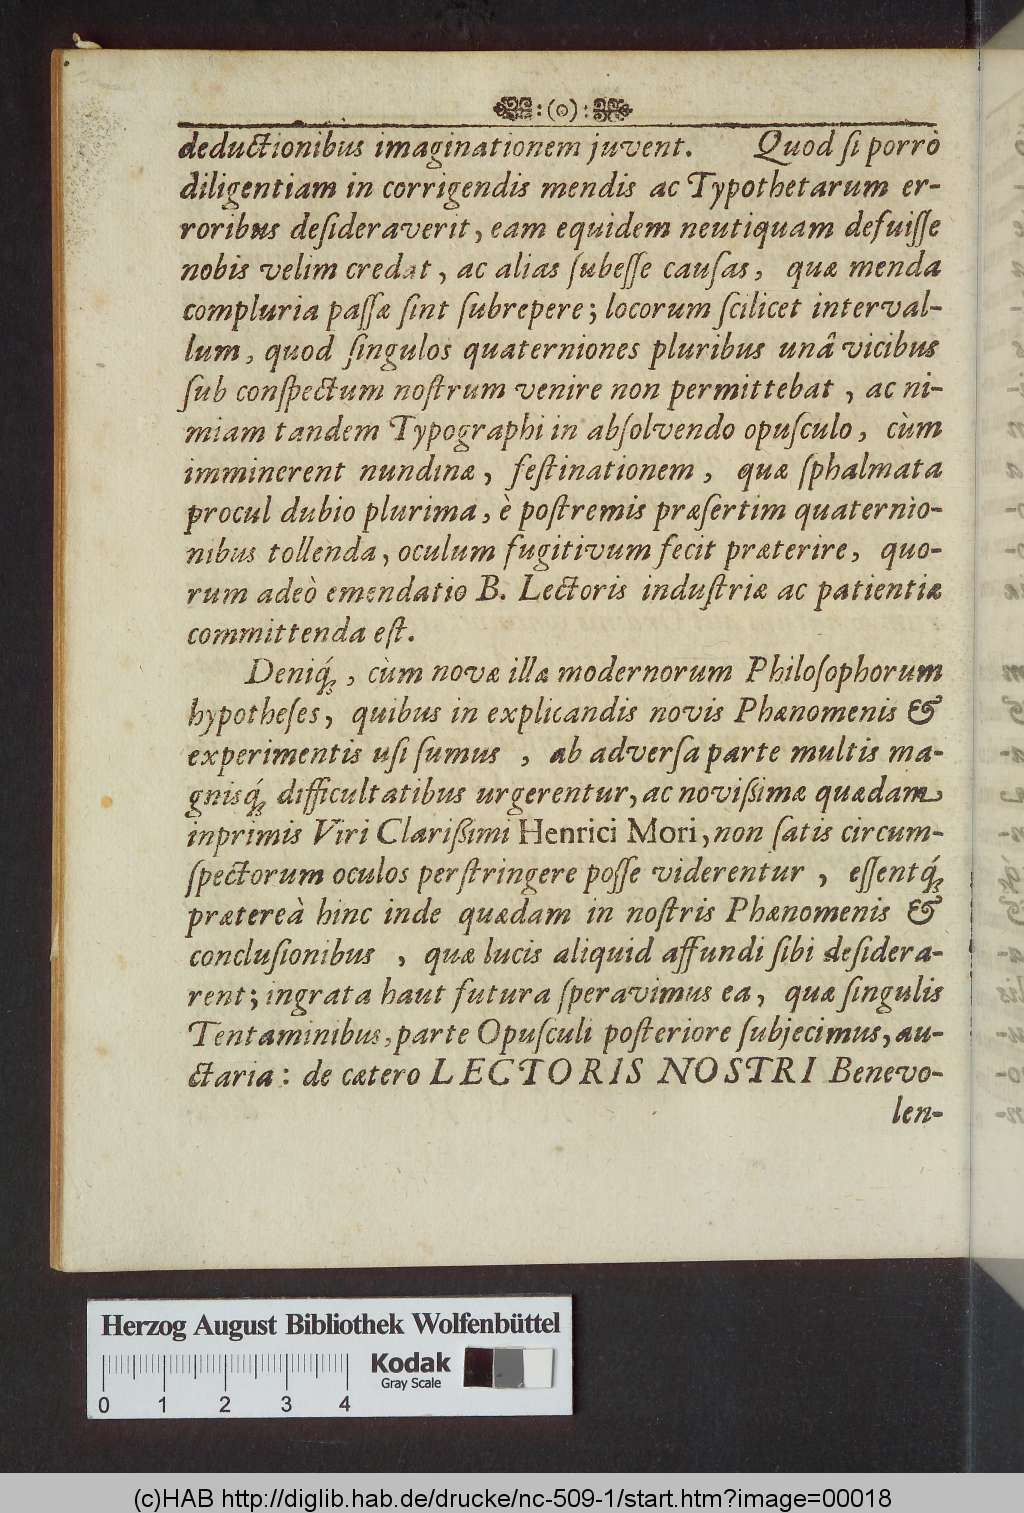 :(o):
deductionibus imaginationem juvent. Quod ſi porrò
diligentiam in corrigendis mendis ac Typothetarum er-
roribus deſideraverit, eam equidem neutiquam defuiſſe
nobis velim credat, ac alias ſubeſſe cauſas, quæ menda
compluria paſſæ ſint ſubrepere; locorum ſcilicet interval-
lum, quod ſingulos quaterniones pluribus unâ vicibus
ſub conſpectum noſtrum venire non permittebat, ac ni-
miam tandem Typographi in abſolvendo opuſculo, cùm
imminerent nundinæ, feſtinationem, quæ ſphalmata
procul dubio plurima, è poſtremis præſertim quaternio-
nibus tollenda, oculum fugitivum fecit præterire, quo-
rum adeò emendatio B. Lectoris induſtriæ ac patientiæ
committenda eſt.
Deniq́;, cùm novæ illæ modernorum Philoſophorum
hypotheſes, quibus in explicandis novis Phænomenis &
experimentis uſi ſumus, ab adverſa parte multis ma-
gnisq́; difficultatibus urgerentur, ac noviſſimæ quædam
inprimis Viri Clariſſimi Henrici Mori, non ſatis circum-
ſpectorum oculos perſtringere poſſe viderentur, eſſentq́;
prætereà hinc inde quædam in noſtris Phænomenis &
concluſionibus, quæ lucis aliquid affundi ſibi deſidera-
rent; ingrata haut futura ſperavimus ea, quæ ſingulis
Tentaminibus, parte Opuſculi poſteriore ſubjecimus, au-
ctaria: de cætero LECTORIS NOSTRI Benevo-
len-
Herzog August Bibliothek Wolfenbüttel
Kodak
Gray Scale
0 1 2 3 4
(c)HAB http://diglib.hab.de/drucke/nc-509-1/start.htm?image=00018